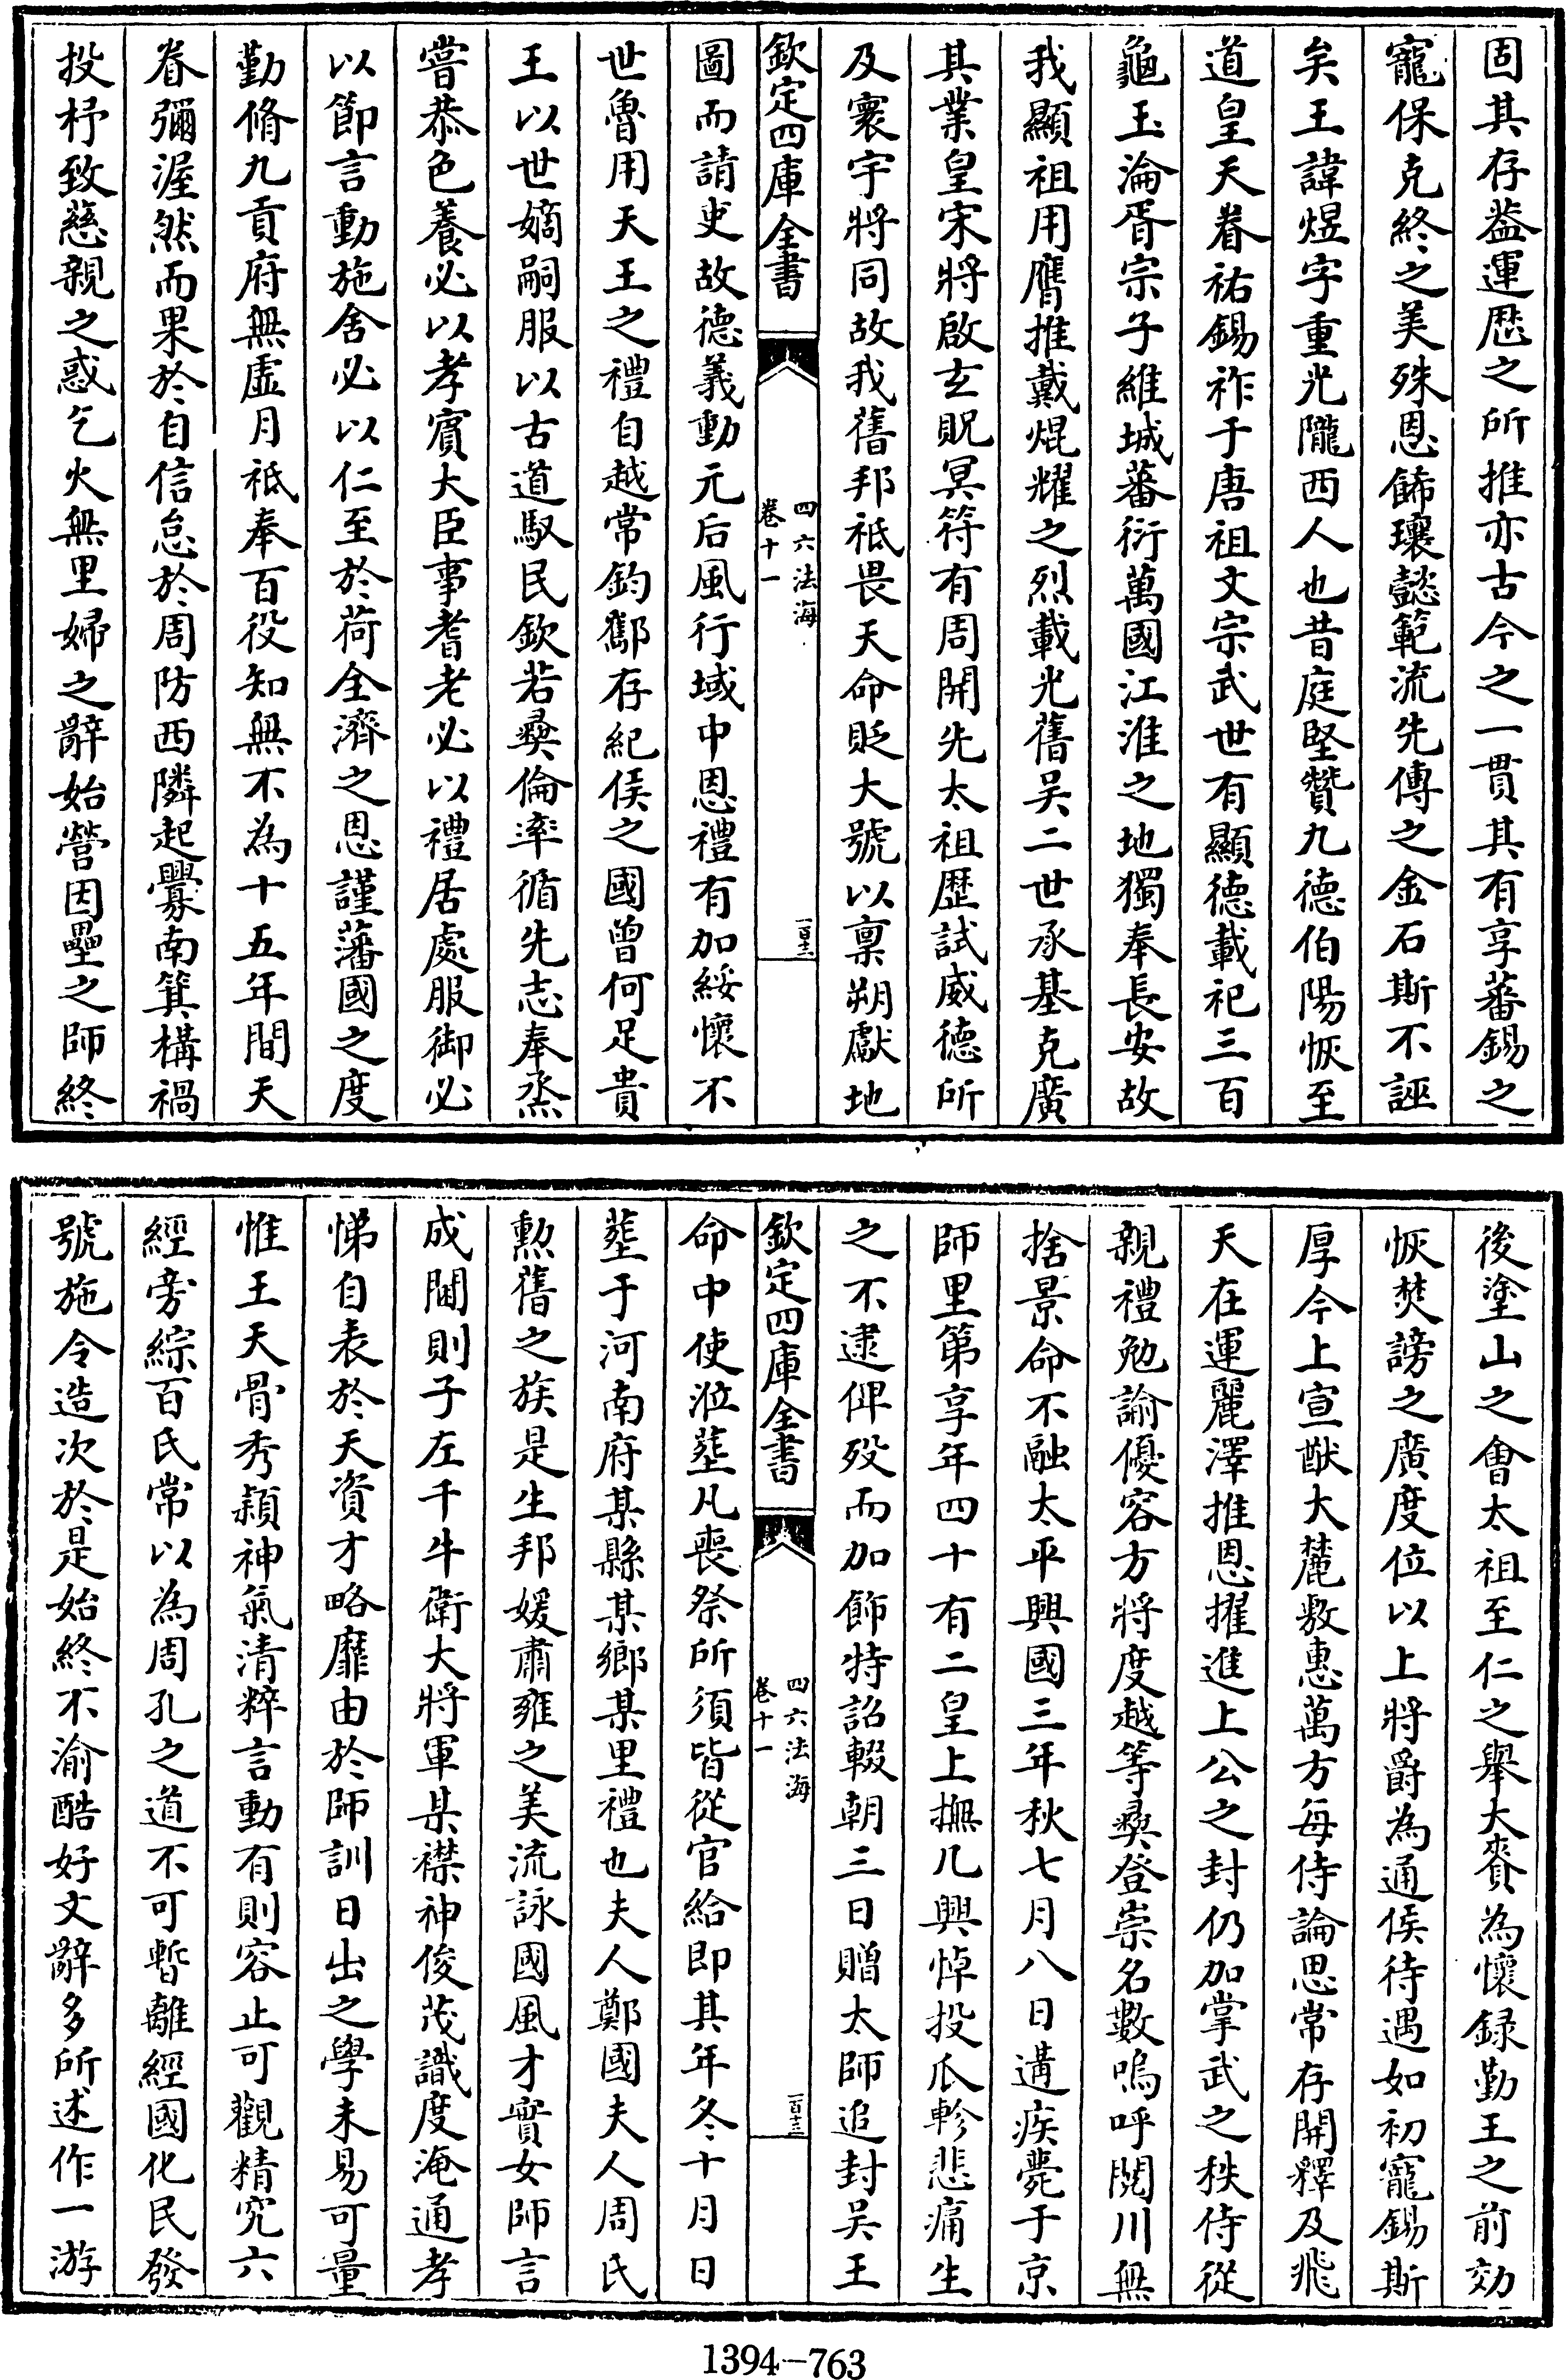 固其存益運厯之所推亦古今之一貫其有享蕃錫之
寵保克終之美殊恩飾壤懿範流先傳之金石斯不誣
矣王諱煜字重光隴西人也昔庭堅贊九德伯陽恢至
道皇天眷祐錫祚于唐祖文宗武世有顯德載祀三百
龜玉淪胥宗子維城蕃衍萬國江淮之地獨奉長安故
我顯祖用膺推戴焜耀之烈載光舊吴二世承基克廣
其業皇宋將啟玄貺冥符有周開先太祖歴試威德所
及寰宇將同故我舊邦祗畏天命貶大號以禀朔獻地
欽定四庫全書
四六法海
卷十一
一百十三
圖而請吏故德義動元后風行域中恩禮有加綏懷不
世魯用天王之禮自越常鈞酅存紀侯之國曾何足貴
王以世嫡嗣服以古道馭民欽若彝倫率循先志奉烝
嘗恭色養必以孝賓大臣事耆老必以禮居處服御必
以節言動施舍必以仁至於荷全濟之恩謹藩國之度
勤脩九貢府無虚月祗奉百役知無不為十五年間天
眷彌渥然而果於自信怠於周防西隣起釁南箕構禍
投杼致慈親之惑乞火無里婦之辭始營因壘之師終
後塗山之會太祖至仁之舉大賚為懐録勤王之前効
恢焚謗之廣度位以上將爵為通侯待遇如初寵錫斯
厚今上宣猷大麓敷惠萬方每侍論思常存開釋及飛
天在運麗澤推恩擢進上公之封仍加掌武之秩侍從
親禮勉諭優容方將度越等彝登崇名數嗚呼閲川無
捨景命不融太平興國三年秋七月八日遘疾薨于京
師里第享年四十有二皇上撫几興悼投瓜軫悲痛生
之不逮俾歿而加飾特詔輟朝三日贈太師追封吴王
欽定四庫全書
四六法海
卷十一
一百十三
命中使涖塟凡喪祭所須皆從官給即其年冬十月日
塟于河南府某縣某鄉某里禮也夫人鄭國夫人周氏
勲舊之族是生邦媛肅雍之美流詠國風才實女師言
成閫則子左千牛衛大將軍某襟神俊茂識度淹通孝
悌自表於天資才略靡由於師訓日出之學未易可量
惟王天骨秀穎神氣清粹言動有則容止可觀精究六
經旁綜百氏常以為周孔之道不可暫離經國化民發
號施令造次於是始終不渝酷好文辭多所述作一游
1394-763